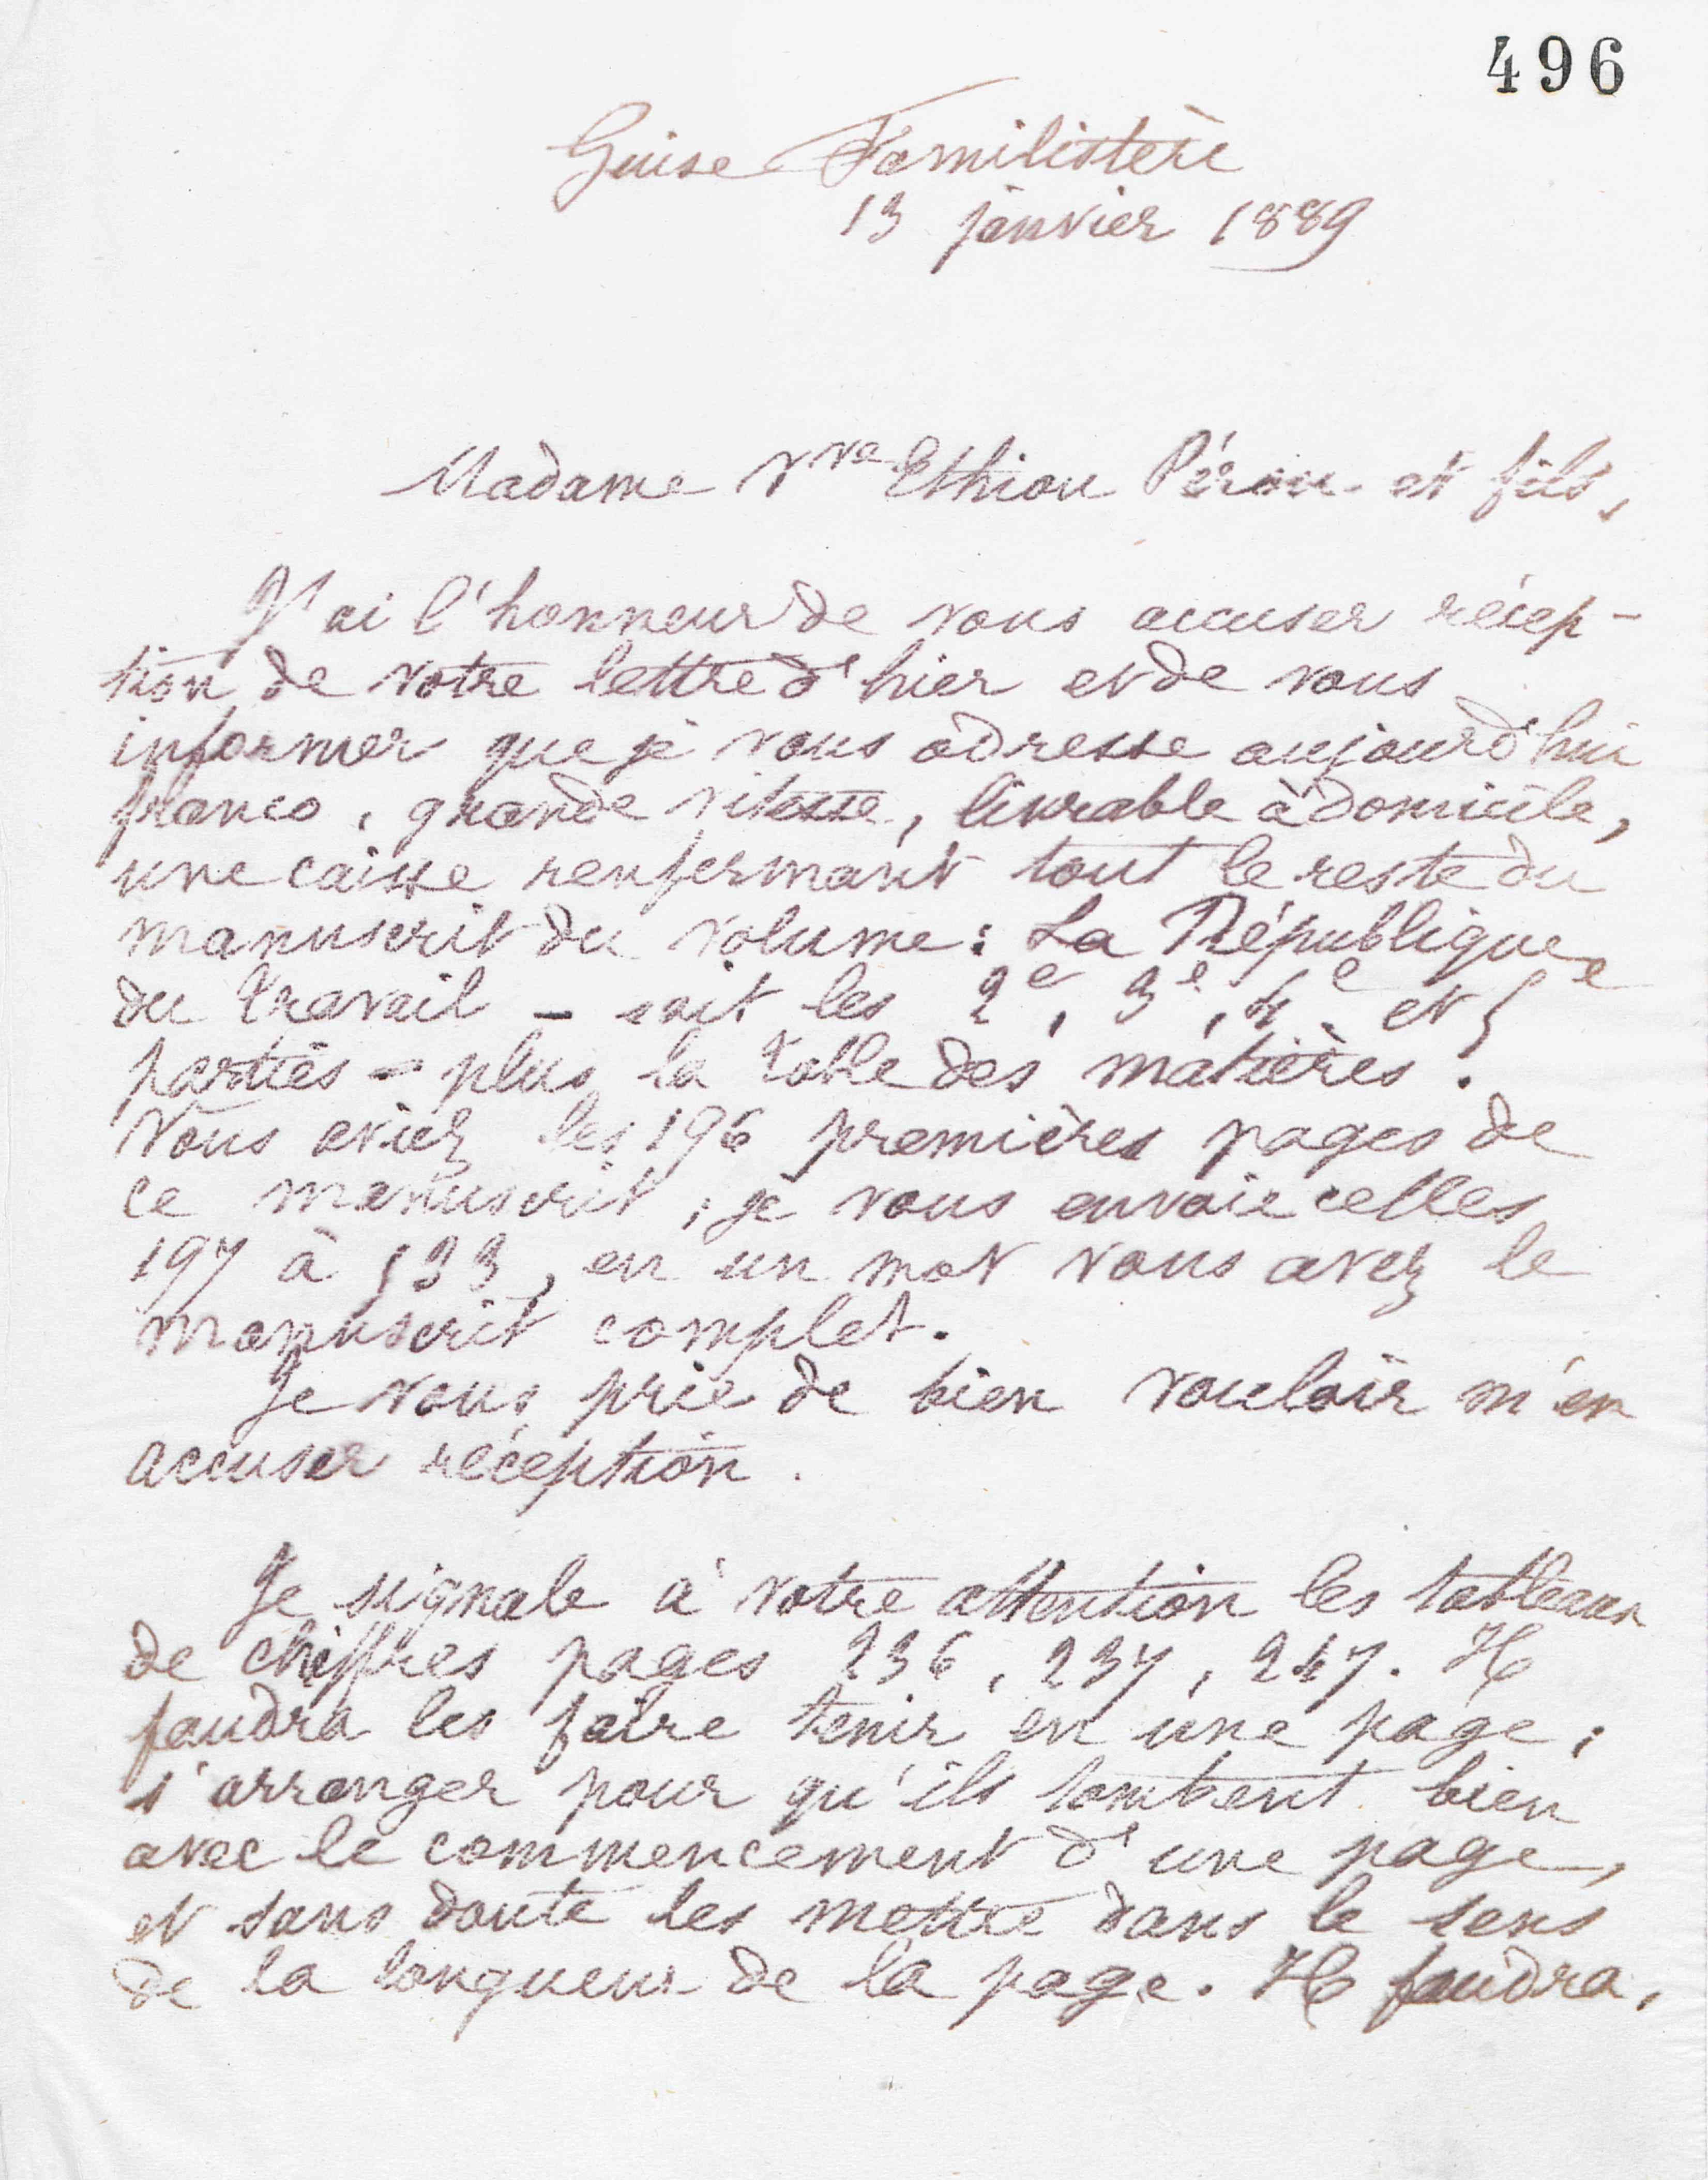 496
Guise Familistère
13 janvier 1889
Madame Vve Ethiou Pérou et fils,
J'ai l'honneur de vous accuser récep-
tion de votre lettre d'hier et de vous
informer que je vous adresse aujourd'hui
franco, grande vitesse, livrable à domicile,
une caisse renfermant tout le reste du
manuscrit du volume : La République
du travail - soit les 2e, 3e, 4e et 5e
parties - plus la table des matières.
Vous aviez les 196 premières pages de
ce manuscrit, je vous envoie celles
197 à 533, en un mot vous avez le
manuscrit complet.
Je vous prie de bien vouloir m'en
accuser réception.
Je signale à votre attention les tableaux
de chiffres pages 236, 237, 247. Il
faudra les faire tenir en une page ;
s'arranger pour qu'ils tombent bien
avec le commencement d'une page,
et sans doute les mettre dans le sens
de la longueur de la page. Il faudra,